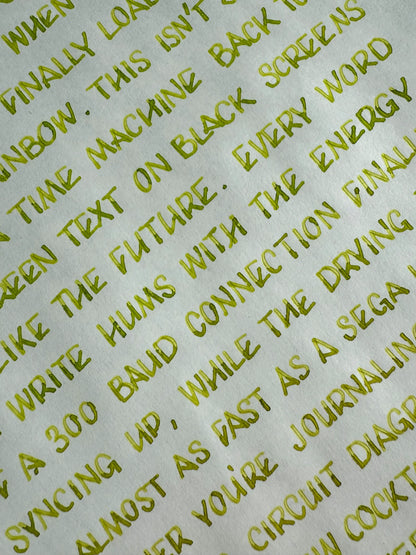 WHEN
FINALLY LOA
NBOW. THIS ISN'T
TIME MACHINE BACK TO
REEN TEXT ON BLACK SCREENS
LIKE THE FUTURE. EVERY WORD
WRITE HUMS WITH THE ENERGY
A 300 BAUD CONNECTION FINALL
SYNCING UP. WHILE THE DRYING
ALMOST AS FAST AS A SEGA
ER YOU'RE JOURNALIN
CIRCUIT DIAGR
COCKT